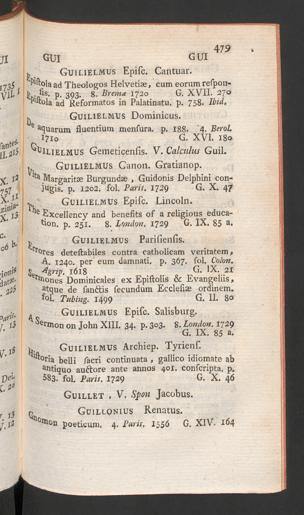 479
GUI GUI
GUILIELMUS Episc. Cantuar.
Epistola ad Theologos Helvetiæ, cum eorum respon-
sis. p. 393. 8. Bremæ 1720 G. XVII. 270
Epistola ad Reformatos in Palatinatu. p. 758. Ibid.
GUILIELMUS Dominicus.
De aquarum fluentium mensura. p. 188. 4. Berol.
1710 G. XVI. 180
GUILIELMUS Gemeticensis. V. Calculus Guil.
GUILIELMUS Canon. Gratianop.
Vita Margaritæ Burgundæ, Guidonis Delphini con-
jugis. p. 1202. fol. Paris. 1729 G. X. 47
GUILIELMUS Episc. Lincoln.
The Excellency and benefits of a religious educa-
tion. p. 251. 8. London. 1729 G. IX. 85 a.
GUILIELMUS Parisiensis.
Errores detestabiles contra catholicam veritatem,
A. 1240. per eum damnati. p. 367. fol. Colon.
Agrip. 1618 G. IX. 21
Sermones Dominicales ex Epistolis & Evangeliis,
atque de sanctis secundum Ecclesiæ ordinem.
fol. Tubing. 1499 G. II. 80
GUILIELMUS Episc. Salisburg.
A Sermon on John XIII. 34. p. 303. 8. London. 1729
G. IX. 85 a.
GUILIELMUS Archiep. Tyriens.
Historia belli sacri continuata, gallico idiomate ab
antiquo auctore ante annos 401. conscripta. p.
583. fol. Paris. 1729 G. X. 46
GUILLET, V. Spon Jacobus.
GUILLONIUS Renatus.
Gnomon poeticum. 4. Paris. 1556 G. XIV. 164